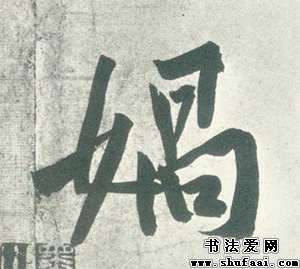 娲
书法爱网
www.shufaai.com